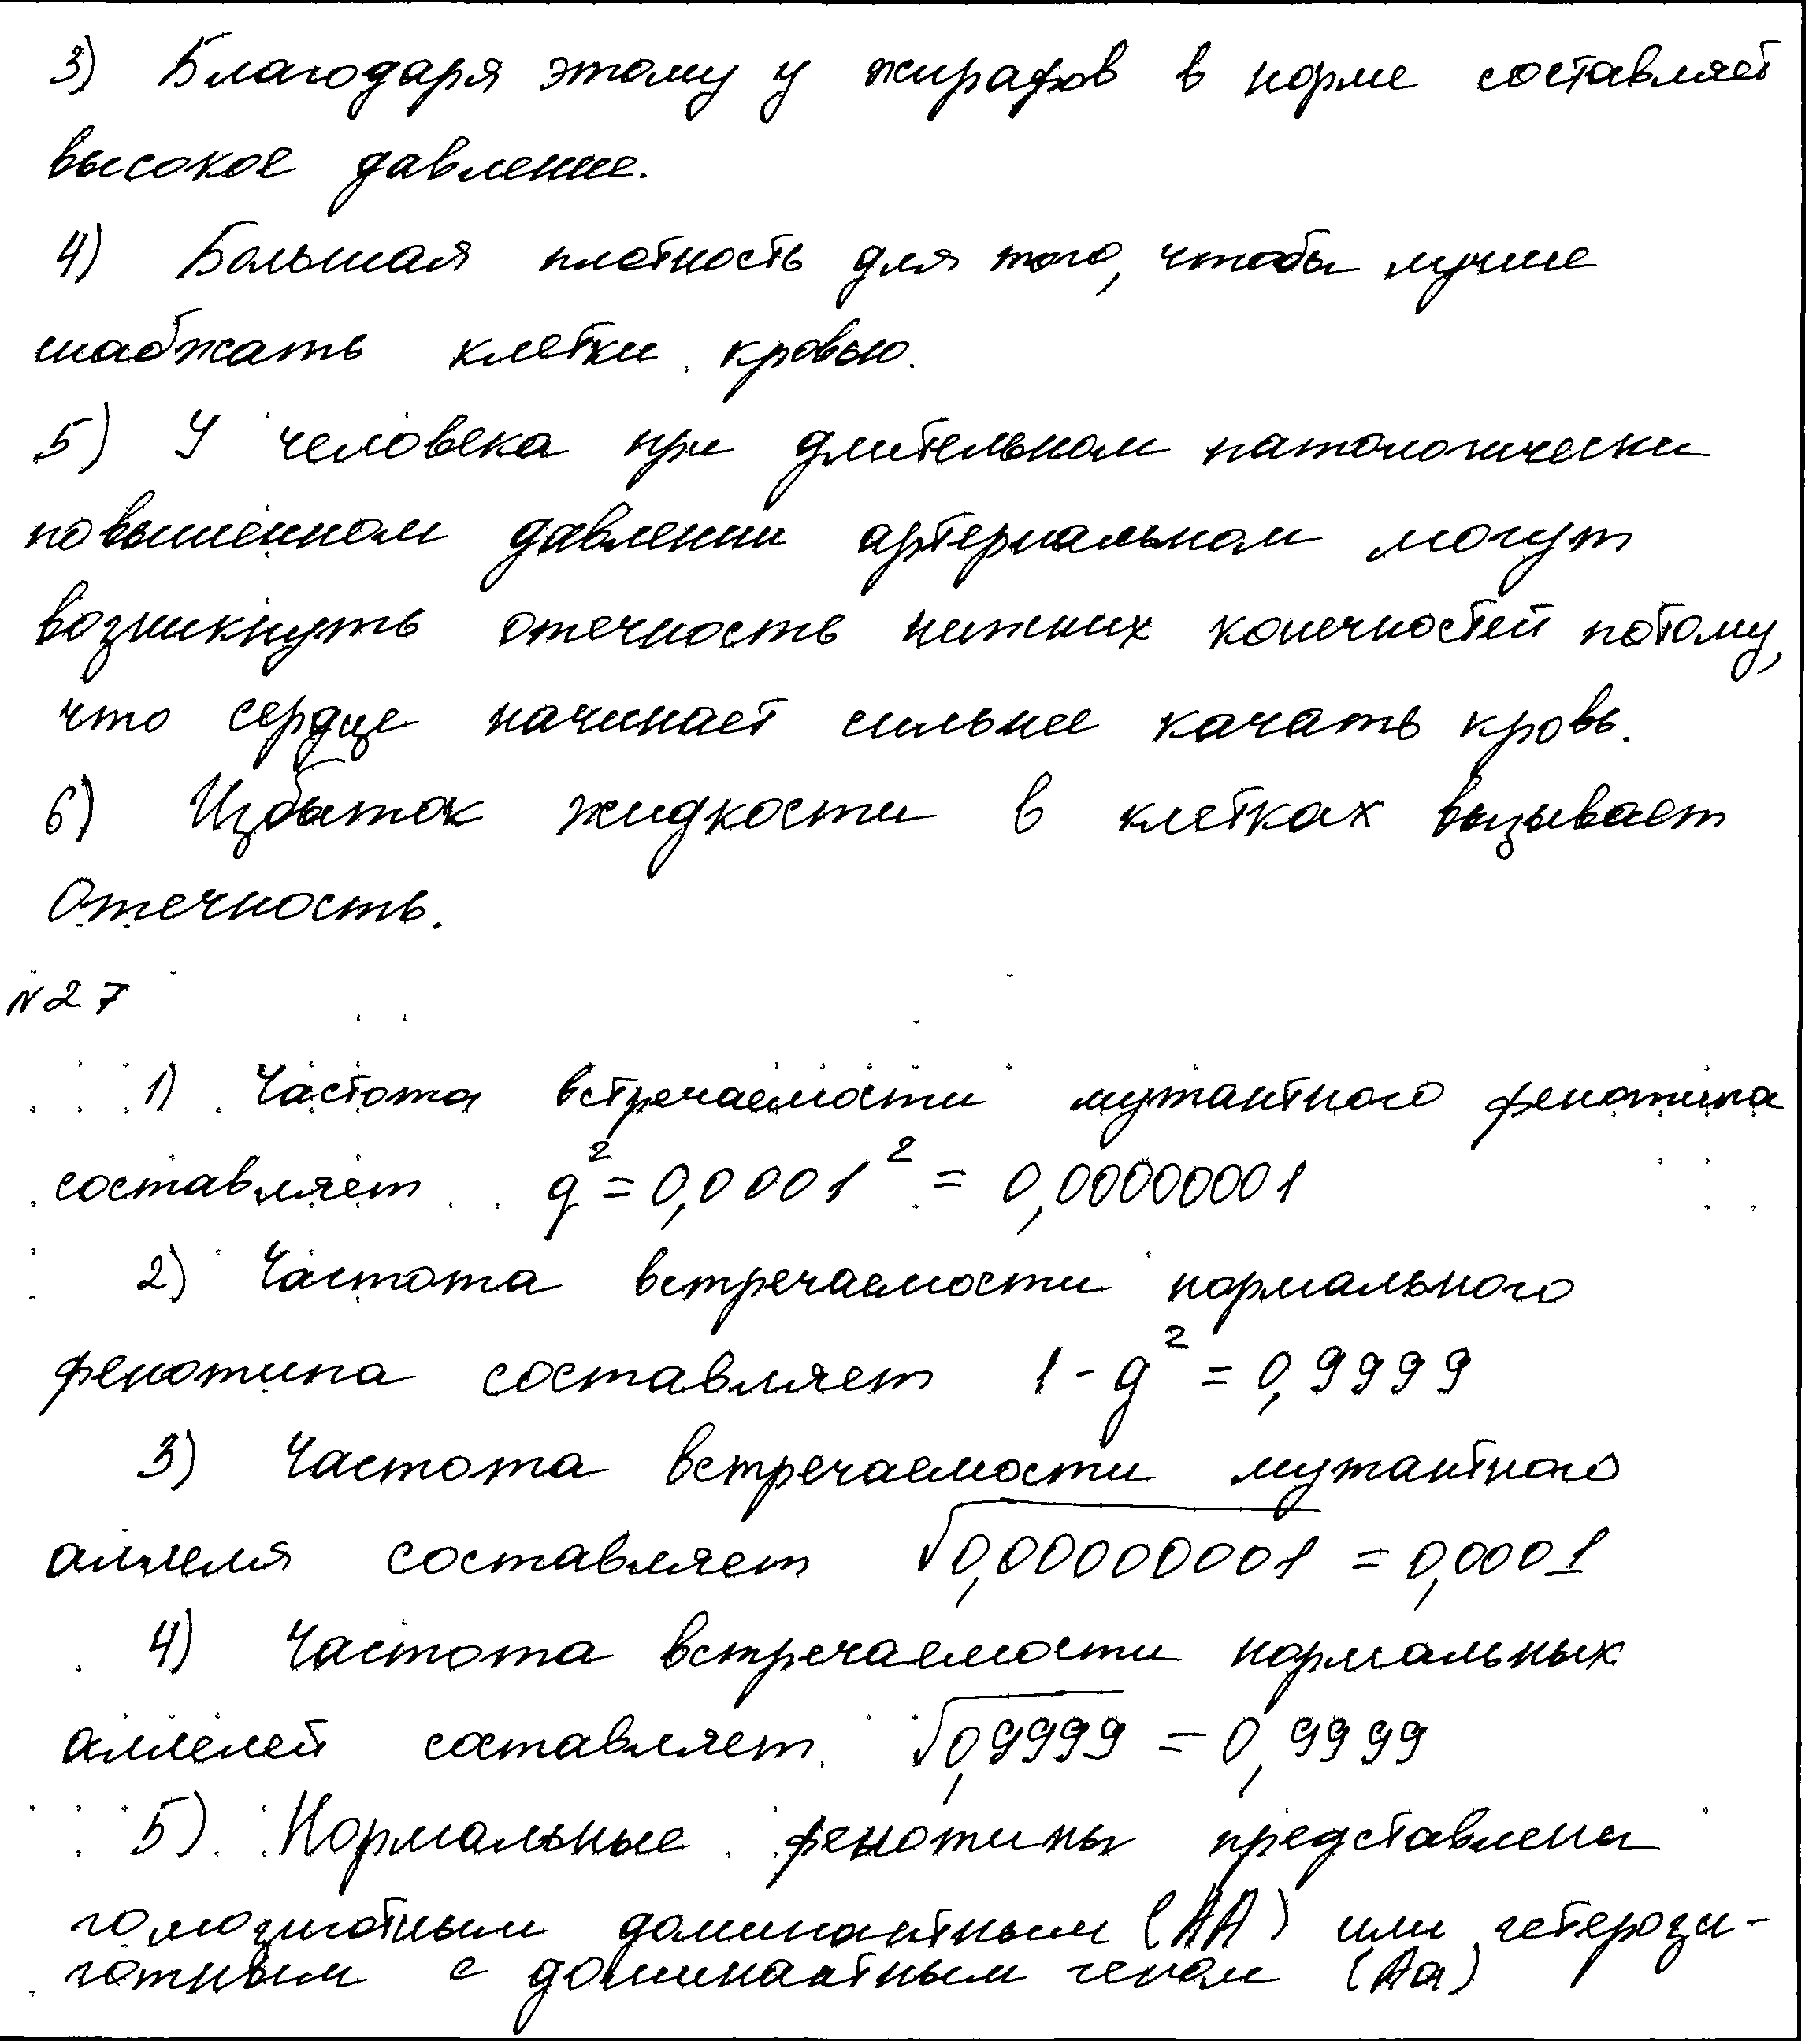 3) Благодаря этому у жирафов в норме составляет
высокое давление.
4) Большая плотность для того, чтобы лучше
снабжать клетки кровью.
5) У человека при длительном патологически
повышенном давлении артериальном могут
возникнуть отечность нижних конечностей потому,
что сердце начинает сильнее качать кровь.
6) Избыток жидкости в клетках вызывает
отечность.
№27
1) Частота встречаемости мутантного фенотипа
составляет q² = 0,0001² = 0,00000001
2) Частота встречаемости нормального
фенотипа составляет 1 - q² = 0,9999
3) Частота встречаемости мутантного
аллеля составляет √0,00000001 = 0,0001
4) Частота встречаемости нормальных
аллелей составляет √0,9999 = 0,9999
5) Нормальные фенотипы представлены
гомозиготным доминантным (АА) или гетерози-
готным с доминантным геном (Аа)